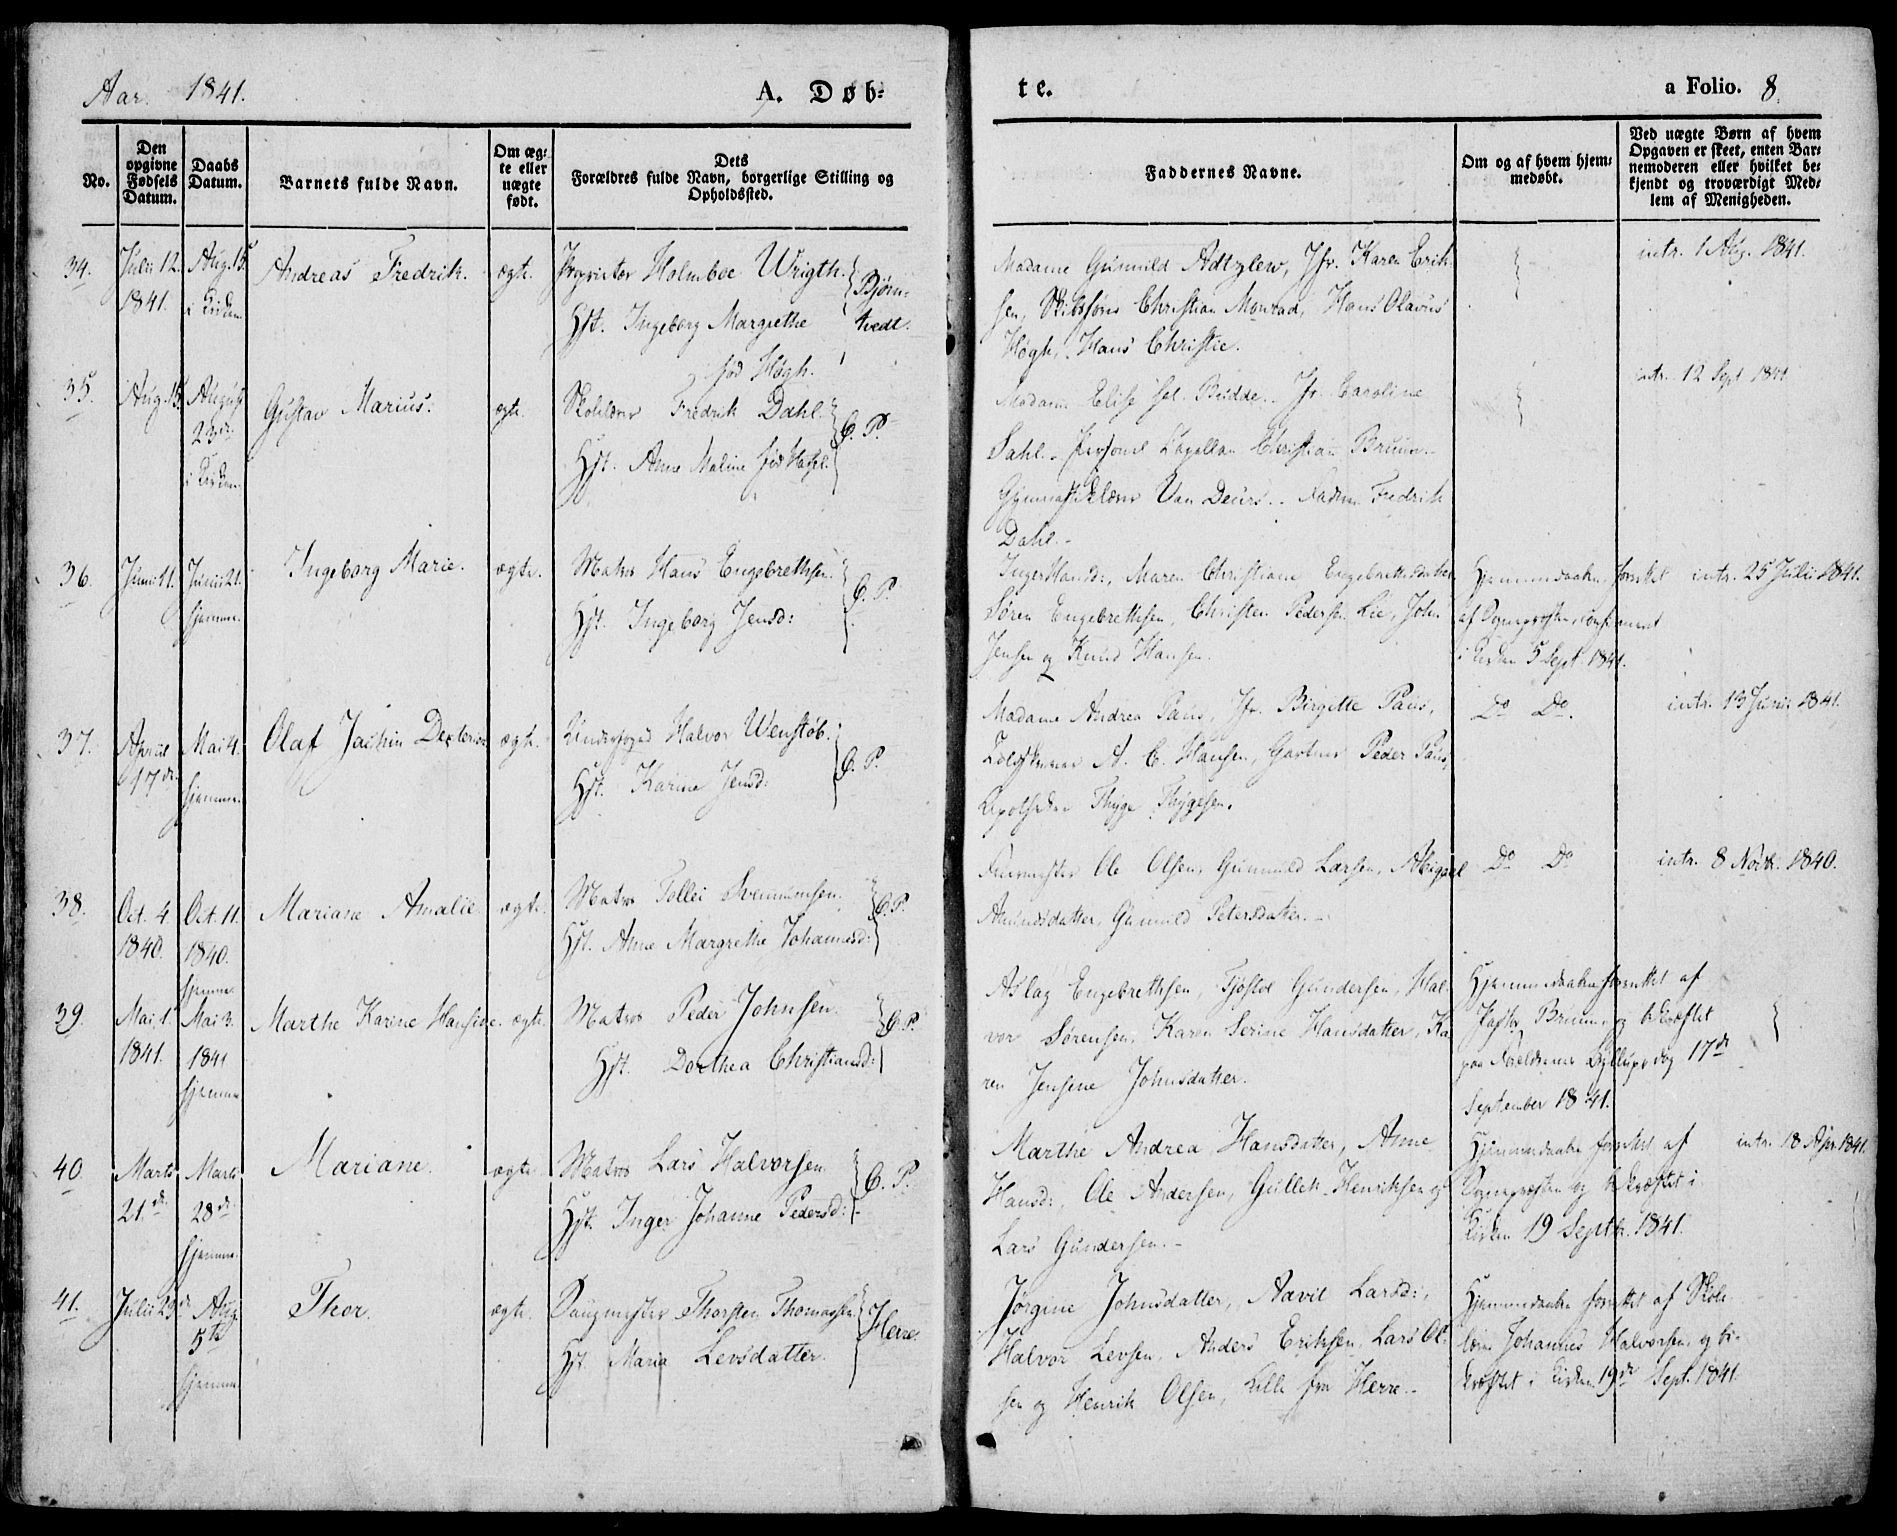 Aar. 1841.
A. Døb-
te.
a Folio. 8.
No.
Den
opgivne
Fødsels
Datum.
Daabs
Datum.
Barnets fulde Navn.
Om æg-
te eller
uægte
født.
Dets
Forældres fulde Navn, borgerlige Stilling og
Opholdssted.
Faddernes Navne.
Om og af hvem hjem-
medøbt.
Ved uægte Børn af hvem
Opgaven er skeet, enten Bar-
nemoderen eller hvilket be-
kjendt og troværdigt Med-
lem af Menigheden.
34.
Julii 12.
1841.
Aug. 15.
i Kirken
Andreas Fredrik.
ægte.
Proprietær Holmboe Wrigth.
Hst. Ingeborg Margrethe
fød Høgh.
Bjørn-
tvedt.
Madame Gunnild Jfr. Karen Erik-
sen, Christian Monrad, Hans Olavus
Høgh, Hans Christie.
intr. 1 Aug. 1841.
35.
Aug. 15.
August
23de
i Kirken
Gustav Marius.
ægte.
Fredrik Dahl.
Hst. Anne Maline fød
B. P.
Madame Elise sel. Budde. Jfr. Caroline
Dahl. personel Capellan Christian Bruun.
Van Deurs. Faderen Fredrik
Dahl.
intr. 12 Sept 1841
36.
Junii 11.
Junii 21.
hjemme.
Ingeborg Marie.
ægte.
Matros Hans Engebrethsen.
Hst. Ingeborg Jensd:
B. P.
Inger Hansd:, Maren Christiane Engebrethsdatter
Søren Engebrethsen, Christen Pedersen Lie, John
Jensen og Knud Hansen.
Hjemmedaaben forrettet
af
i Kirken 5 Sept. 1841.
intr. 25 Julii 1841.
37.
April
17de
Mai 4.
hjemme.
Olaf Jachin Dexterior
ægte.
Halvor Wenstøb.
Hst. Karine Jensd:
B. P.
Madame Andrea Paus, Jfr. Birgitte Paus,
A. C. Hansen, Gartner Peder Paus,
Apotheker Thyge Thygesen.
Do Do.
intr. 13 Junii 1841.
38.
Oct. 4
1840.
Oct. 11.
1840.
hjemme.
Mariane Amalie
ægte.
Matros Tollef
Hst. Anne Margrethe Johannesd:
B. P.
Ole Olsen, Gunnuld Larsen, Abigael
Amundsdatter, Gunnild Petersdatter.
Do Do
intr. 8 Novb. 1840.
39.
Mai 1.
1841.
Mai 3.
1841
hjemme
Marthe Karine Hansine.
ægte.
Matros Peder Johnsen.
Hst. Dorthea Christiansd:
B. P.
Aslag Engebrethsen, Gundersen, Hal-
vor Sørensen, Karen Serine Hansdatter, Ka-
ren Jensine Johnsdatter.
Hjemmedaaben forrettet af
Bruun, og bekræftet
paa Forældrenes Bryllupsdag 17de
September 1841.
40.
Marts
21.de
Marts
28de
hjemme.
Mariane.
ægte
Matros Lars Halvorsen
Hst. Inger Johanne Pedersd:
B. P.
Marthe Andrea Hansdatter, Anne
Hansd:, Ole Andersen, Gullek Henriksen og
Lars Gundersen.
Hjemmedaaben forrettet af
og bekræftet i
Kirken 19 Septb. 1841.
intr. 18 Apr. 1841.
41.
Julii 29de
Aug.
5te
hjemme
Thor.
ægte.
Thorsten Thomassen
Hst. Maria Levsdatter.
Herre.
Jørgine Johnsdatter, Larsd:,
Halvor Levsen, Anders Eriksen, Lars Ol-
sen og Henrik Olsen, fra Herre.
Hjemmedaaben forrettet af Skole-
lærer Johannes Halvorsen, og be-
kræftet i Kirken 19de Sept. 1841.